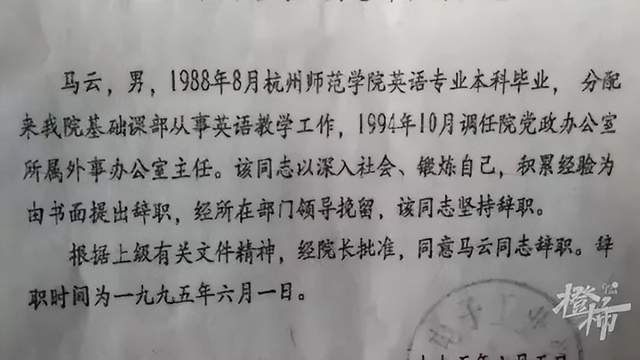 马云，男，1988年8月杭州师范学院英语专业本科毕业，分配
来我院基础课部从事英语教学工作，1994年10月调任院党政办公室
所属外事办公室主任。该同志以深入社会、锻炼自己，积累经验为
由书面提出辞职，经所在部门领导挽留，该同志坚持辞职。
根据上级有关文件精神，经院长批准，同意马云同志辞职。辞
职时间为一九九五年六月一日。
电子工业
橙柿